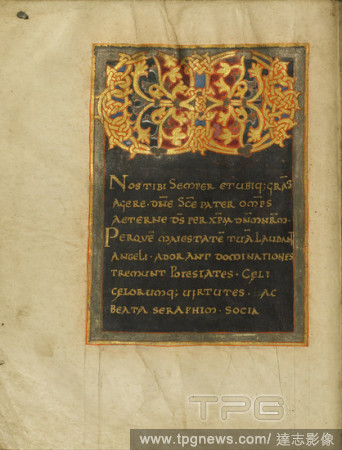 Nos tibi semper et ubiq; gras
agere. dne sce pater omps
aeterne ds per xpm dnm nrm.
Per que maiestate tua laudant
angeli. adorant dominationes
tremunt potestates. celi
celorumq; uirtutes. ac
beata seraphim. socia
TPG
www.tpgnews.com/ 達志影像